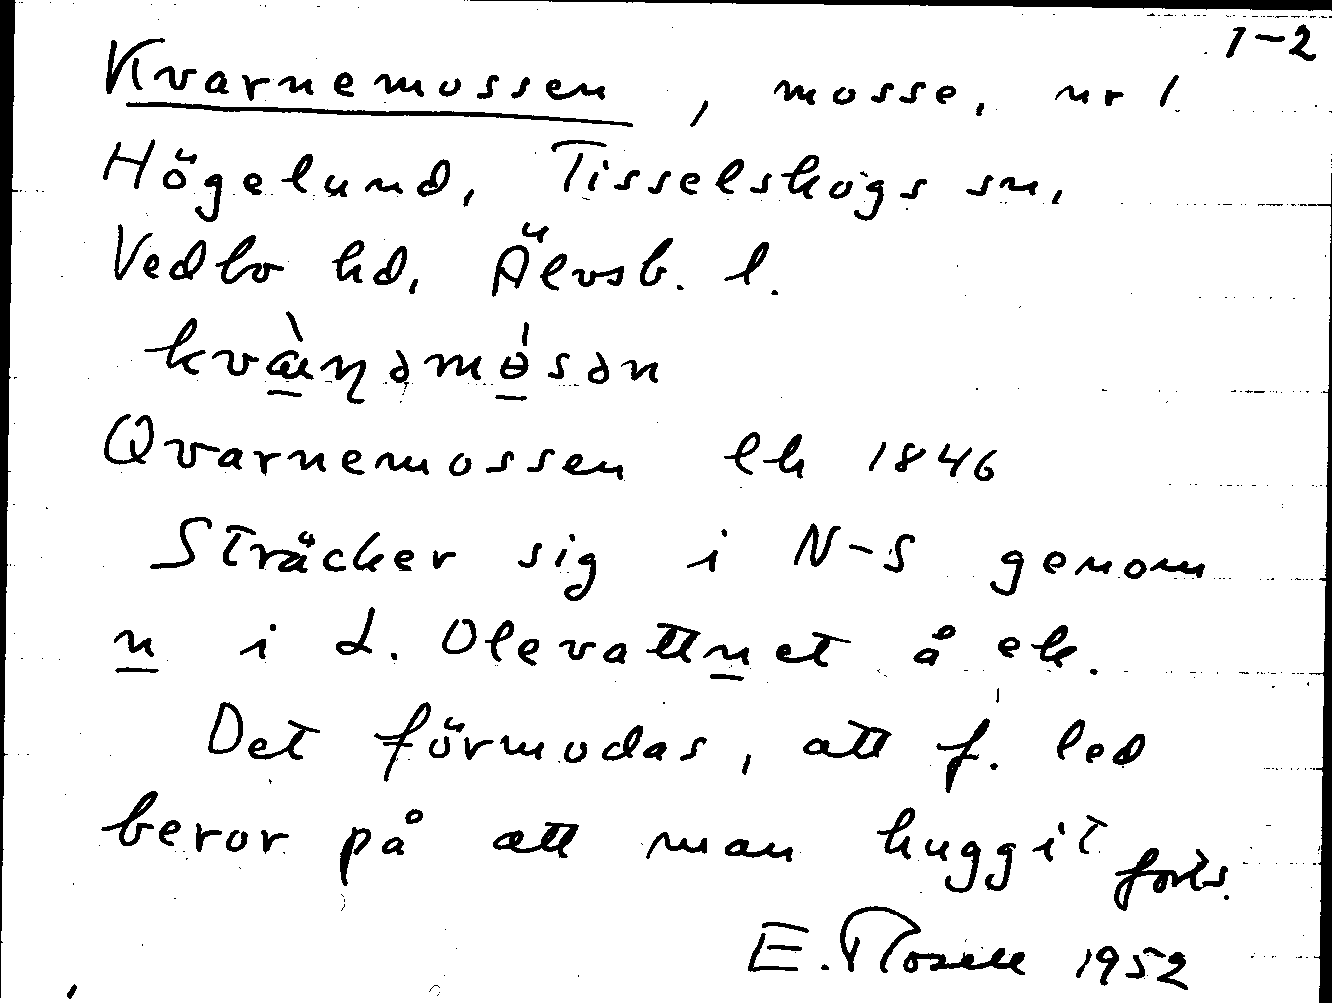 1-2
Kvarnemossen, mosse, nr 1
Högelund, Tisselskogs sn,
Vedbo hd, Älvsb. l.
kvæ̀ɳəmɵ́sən
Qvarnemossen lh 1846
Sträcker sig i N-S genom
n i L. Olevattnet å ek.
Det förmodas, att f. led
beror på att man huggit forts.
E. Rosell 1952